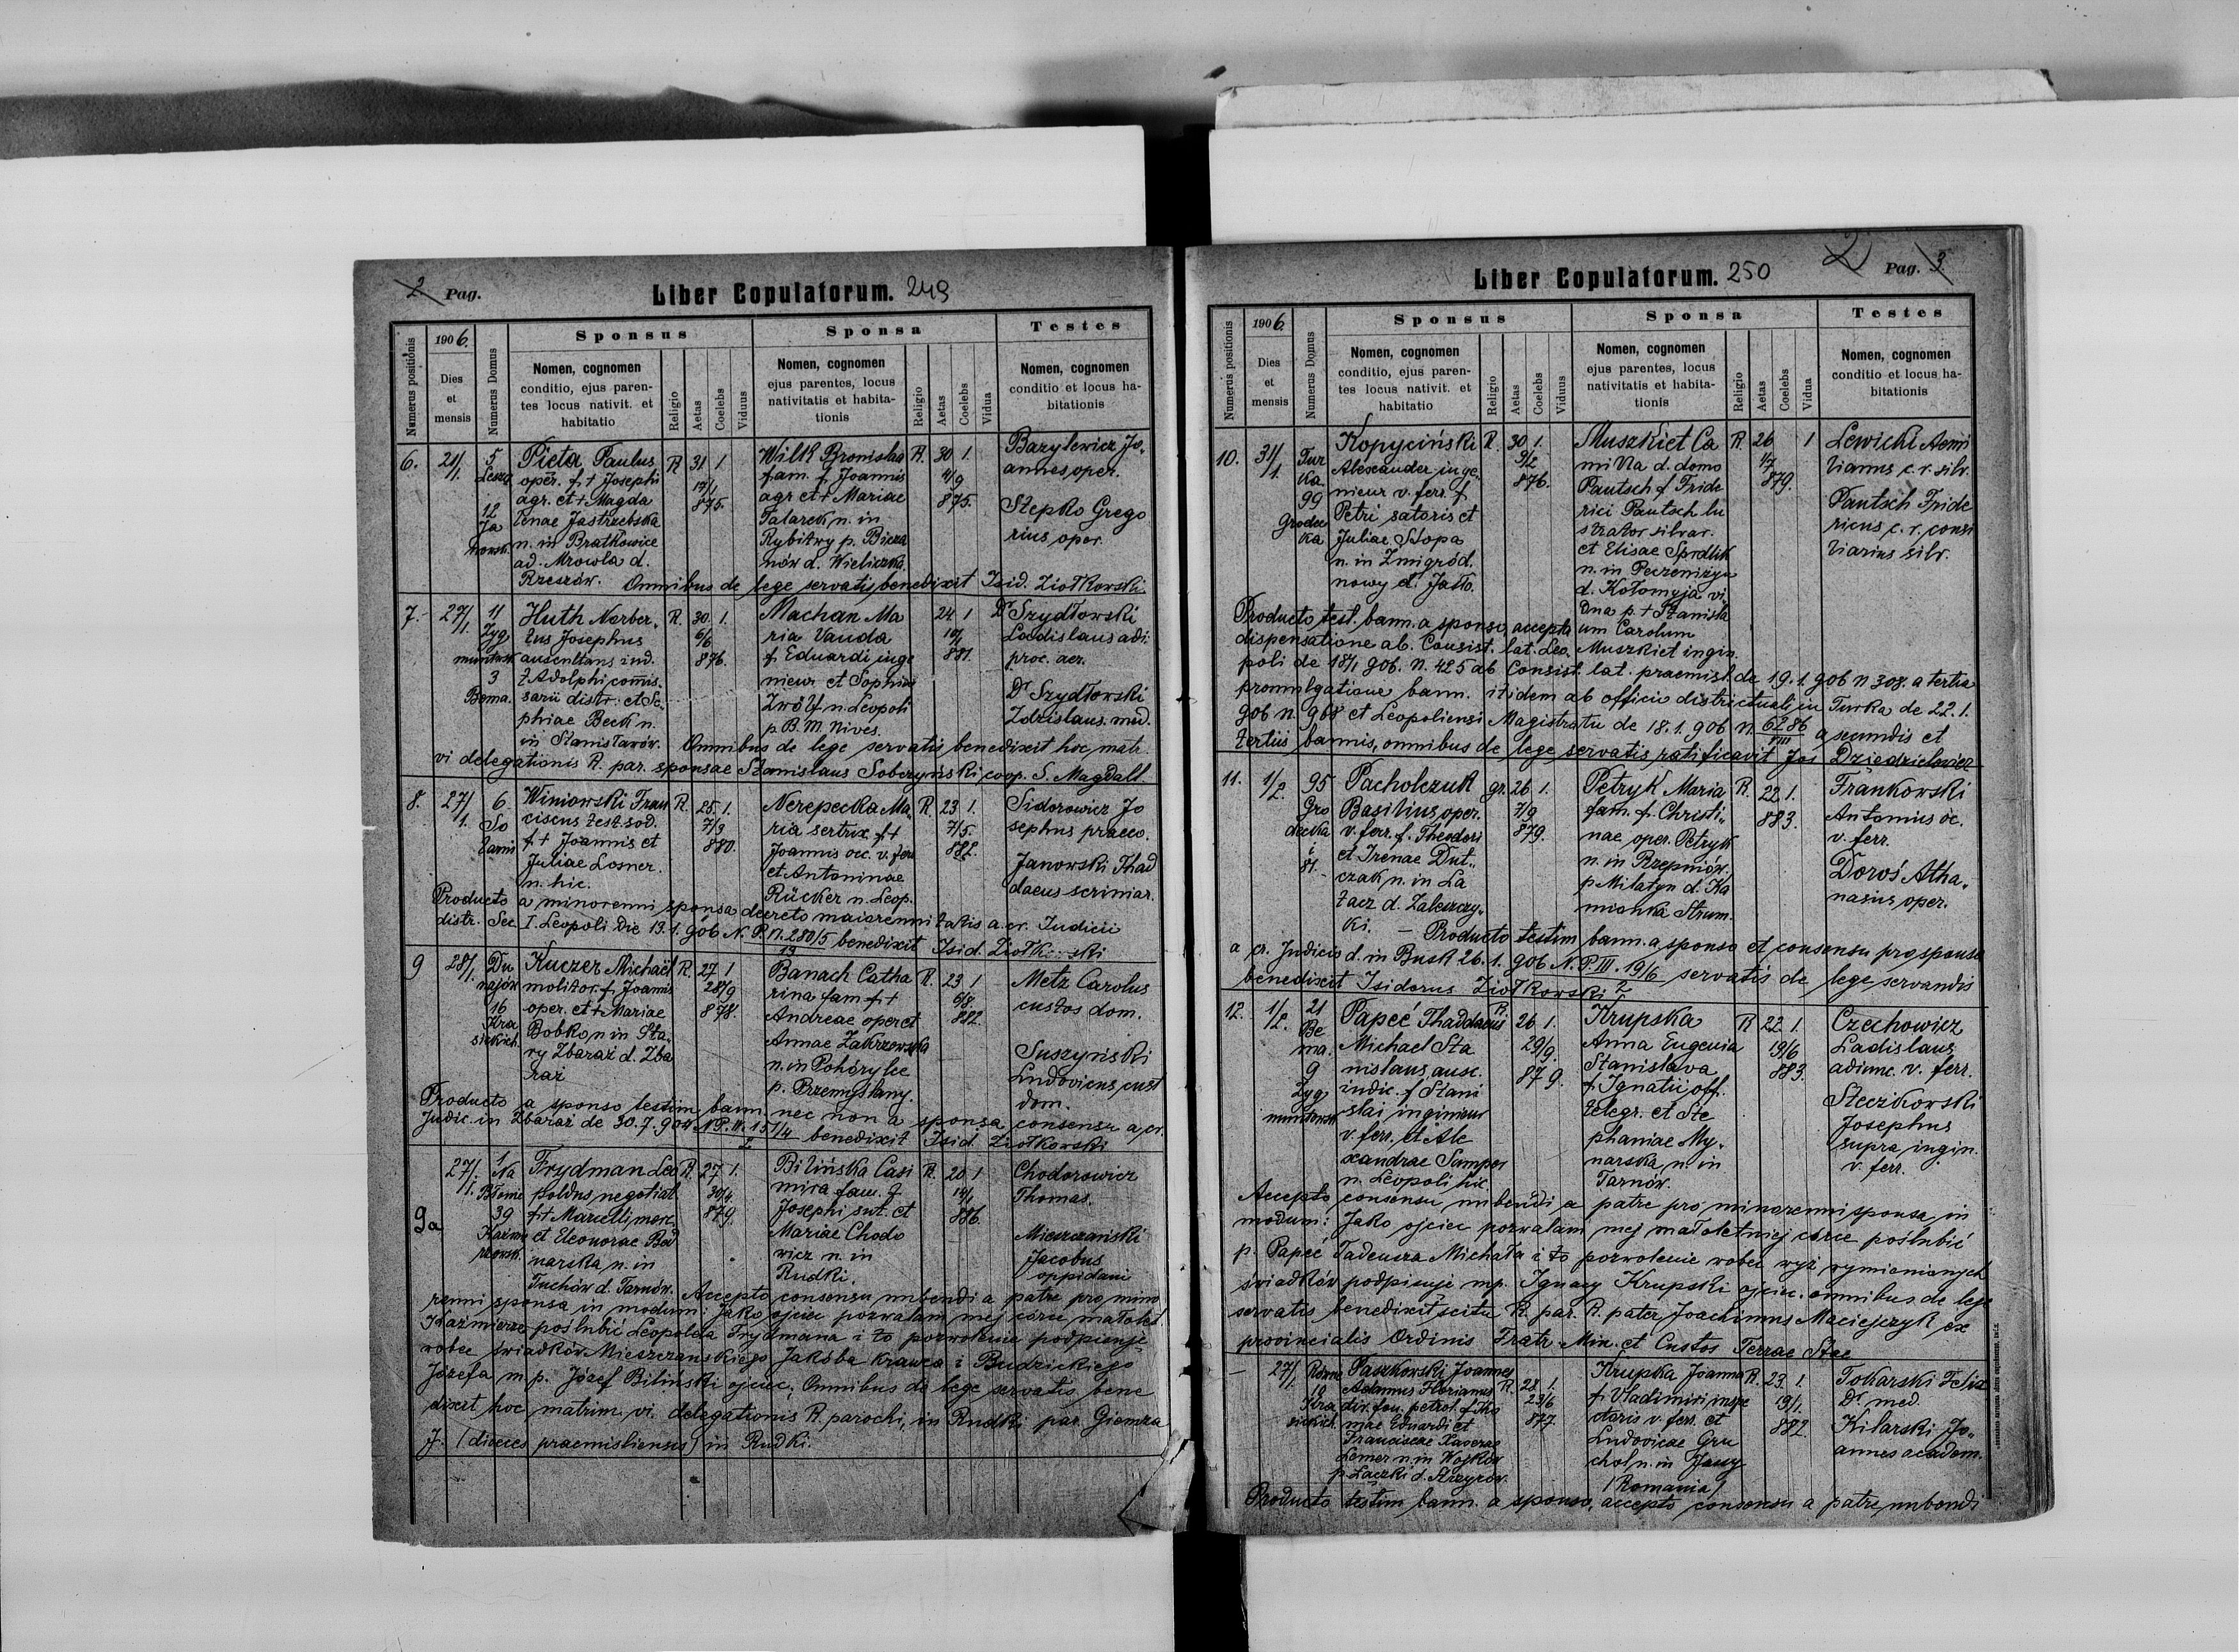 2 Pag.
Liber Copulatorum. 249
Numerus positionis
1906.
Dies et mensis
Numerus Domus
Sponsus
Nomen, cognomen
conditio, ejus paren-
tes locus nativit. et
habitatio
Religio
Aetas
Coelebs
Viduus
Sponsa
Nomen, cognomen
ejus parentes, locus
nativitatis et habita-
tionis
Religio
Aetas
Coelebs
Vidua
Testes
Nomen, cognomen
conditio et locus ha-
bitationis
6. 21/1. 5
12
Pieta Paulus
oper. f. + Josephi
agr. et + Magda
lenae Jastrzebska
n. in Bratkowice
ad. Mrowla d.
Rzeszów.
R 31 1
875.
Wilk Bronislaa
fam. f. Joannis
agr et + Mariae
Talarek n. in
Rybitwy p. Bieża
nów d. Wieliczka
R. 30 1.
4/9
875.
Bazylewicz Jo„
annes oper.
Stepko Grego
rius oper.
Omnibus de lege servatis benedixit Isid. Ziołkowski.
7. 27/1. 11
Zyg
muntowsk
3
Bema.
Huth Norber„
tus Josephus
auscultans ind.
f. Adolphi comis.
sarii distr. et So„
phiae Beck n.
in Stanisławów.
R. 30. 1.
6/6
876.
Machan Ma
ria Vanda
f. Eduardi inge
nieur et Sophiae
n. Leopoli
p B. M. Nives.
24. 1
881.
Dr Szydłowski
Ladislaus adi.
proc. aer.
Dr Szydłowski
Zdzislaus. med.
Omnibus de lege servatis benedixit hoc matr.
vi delegationis R. par. sponsae Stanislaus Sobczyński coop. S. Magdall.
8. 27/1. 6
So
Winiowski Fran
ciscus test. sod.
f. + Joannis et
Juliae Losner.
n. hic.
R. 25 1.
7/3
880.
Nerepecka Ma
ria sertrix f. +
Joannis occ. v. ferr
et Antoninae
Rücker n. Leop.
R. 23 1.
7/5.
882.
Sidorowicz Jo
sephus praeco.
Janowski Thad
daeus scriniar.
Producto a minorenni sponsa decreto maiorennitatis a cr. Iudicii
distr. Sec I. Leopoli die 13. 1. 906 N. P. n. 280/5 benedixit Isid. Ziołk...ski
9 28/1. Du
najow
16
Kra
sickich.
Kuczer Michael
molitor. f. Joannis
oper. et + Mariae
Bobko n. in Sta„
ry Zbaraż d. Zba
raż
R. 27 1
28/9
878.
Banach Catha
rina fam. f. +
Andreae oper et
Annae Zakrzewska
n. in Pohorylce
p. Przemyślany.
R. 23 1
6/8.
882.
Metz Carolus
custos dom.
Suszyński
Ludovicus cust
dom.
Producto a sponso testim. bann. nec non a sponsa consensu a cr.
Judic. in Zbaraż de 30. 7. benedixit Isid. Ziołkowski
9a 27/1. 1
Na
Błonie
39
Kazimi
rzowsk.
Frydman Leo
poldus negotiat
f. + Marcelli merc.
et Eleonorae Bed
narska n. in
Tuchów d. Tarnów.
R. 27. 1.
30/4
879.
Bilińska Casi
mira fam. f.
Josephi sut. et
Mariae Chodo
wicz n. in
Rudki.
R. 20 1
886.
Chodorowicz
Thomas.
Mieszczański
Jacobus
oppidani
Accepto consensu nubendi a patre pro mino
renni sponsa in modum: Jako ojciec pozwalam mej córce małolet.
Kazimierze poślubić Leopolda Frydmana i to pozwolenie podpisuje
wobec świadków Mieszczanskiego Jakóba krawca i Budzickiego
Józefa m. p. Józef Biliński ojciec; Omnibus de lege servatis bene
dixit hoc matrim. vi. delegationis R. parochi, in Rudki par. Giemza
J. (dioeces praemisliensis) in Rudki.
2 Pag. 3
Liber Copulatorum. 250
Numerus positionis
1906.
Dies et mensis
Numerus Domus
Sponsus
Nomen, cognomen
conditio, ejus paren-
tes locus nativit. et
habitatio
Religio
Aetas
Coelebs
Viduus
Sponsa
Nomen, cognomen
ejus parentes, locus
nativitatis et habita-
tionis
Religio
Aetas
Coelebs
Vidua
Testes
Nomen, cognomen
conditio et locus ha-
bitationis
10. 31/1. Tur
ka
99
Grodec
ka
Kopyciński
Alexander inge„
nieur v. ferr. f.
Petri satoris et
Juliae Stopa
n. in Zmigród.
nowy d. Jasło.
R. 30 1.
9/2
876.
Muszkiet Ca
milla d. domo
Pautsch f. Fride
rici Pautsch lu
strator silvar.
et Elisae Sprdlik
n. in Peczeniżyn
d. Kołomyja vi„
dua p. + Stanisla
um Carolum
Muszkiet ingin.
R. 26 1
1/7
879.
Lewicki Aemi
lianus c. r. silv.
Pautsch Fride
ricus c. r. consi
liarius silv.
Producto test. bann. a sponso, accepta
dispensatione ab. Consist. lat. Leo„
poli de 18/1 906. N. 425 ab Consist. lat. praemisl. de 19. 1. 906 n 308. a tertia
promulgatione bann. itidem ab officio districtuali in Turka de 22. 1.
906 n. 968 et Leopoliensi Magistratu de 18. 1. 906 n. 6286/VIII a secundis et
tertiis bannis, omnibus de lege servatis ratificavit Jos Dziedzielewicz
11. 1/2. 95
Gro
decka
i
81.
Pacholczuk
Basilius oper.
v. ferr. f. Theodori
et Irenae Dut„
czak n. in La
tacz d. Zaleszczy„
ki.
gr. 26 1.
7/9
879.
Petryk Maria
fam. f. Christi„
nae oper. Petryk
n. in Rzepniów.
p Milatyn d. Ka
mionka Strum.
R. 22 1.
883.
Frankowski
Antonius oc.
v. ferr.
Doroś Atha„
nasius oper.
– Producto testim bann. a sponso et consensu pro sponsa
a cr. Judicio d. in Busk 26. 1. 906 N. P. III. 19/6 servatis de lege servandis
benedixit Isidorus Ziołkowski
12. 1/2. 21
Be
ma.
9
Zyg
muntowsk
Papeé Thaddaeus
Michael Sta
nislaus, ausc.
iudic. f. Stani
slai inginieur
v. ferr. et Ale
xandrae Samper
n. Leopoli hic.
R. 26 1.
29/9.
879.
Krupska
Anna Eugenia
Stanislava
f. Ignatii off.
telegr. et Ste
phaniae My„
narska, n. in
Tarnów.
R 22 1.
19/6
883.
Czechowicz
Ladislaus
adiunc. v. ferr.
Steczkowski
Josephus
supra ingin.
v. ferr.
Accepto consensu nubendi a patre pro minorenni sponsa in
modum: Jako ojciec pozwalam mej małoletniej córce poślubić
p. Papeé Tadeusza Michała i to pozwolenie wobec wyż wymienionych
świadków podpisuje mp. Ignacy Krupski ojciec. omnibus de lege
servatis benedixit scitu R. par. R. pater Joachimus Maciejczyk ex
provincialis Ordinis Fratr. Min. et Custos Terrae Stae
– 27/1. Rómne
Kra
sickich.
Paszkowski Joannes
Adamus Florianus
dir. fon. petrol. f. Tho
mae Eduardi et
Franciscae Xaverae
Lemer n. in Wojków
p. Łączki d. Strzyżów.
R. 28. 1.
23/6
877.
Krupka Joanna
f. Vladimiri inspe
ctoris v. ferr. et
Ludovicae Gru
chol n. in Jassy
/Romania/
R. 23. 1.
19/1.
882.
Tokarski Felix
Dr. med.
Kilarski Jo„
annes academ.
Producto testim bann. a sponso, accepto consensu a patre nubendi